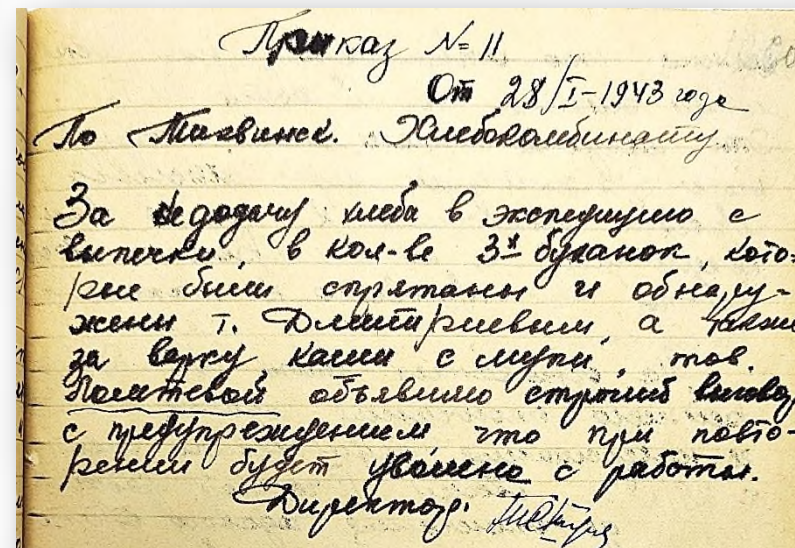 Приказ № 11
От 28/I-1943 года
По Тиквинск. Хлебокомбинату
За недодачу хлеба в экспедицию с
выпечки, в кол-ве 3х буханок, кото=
рые были спрятаны и обнару-
жены т. Дмитриевым, а также
за варку каши с муки, тов.
объявляю строгий выговор
с предупреждением что при повто-
рении будет уволена с работы.
Директор: